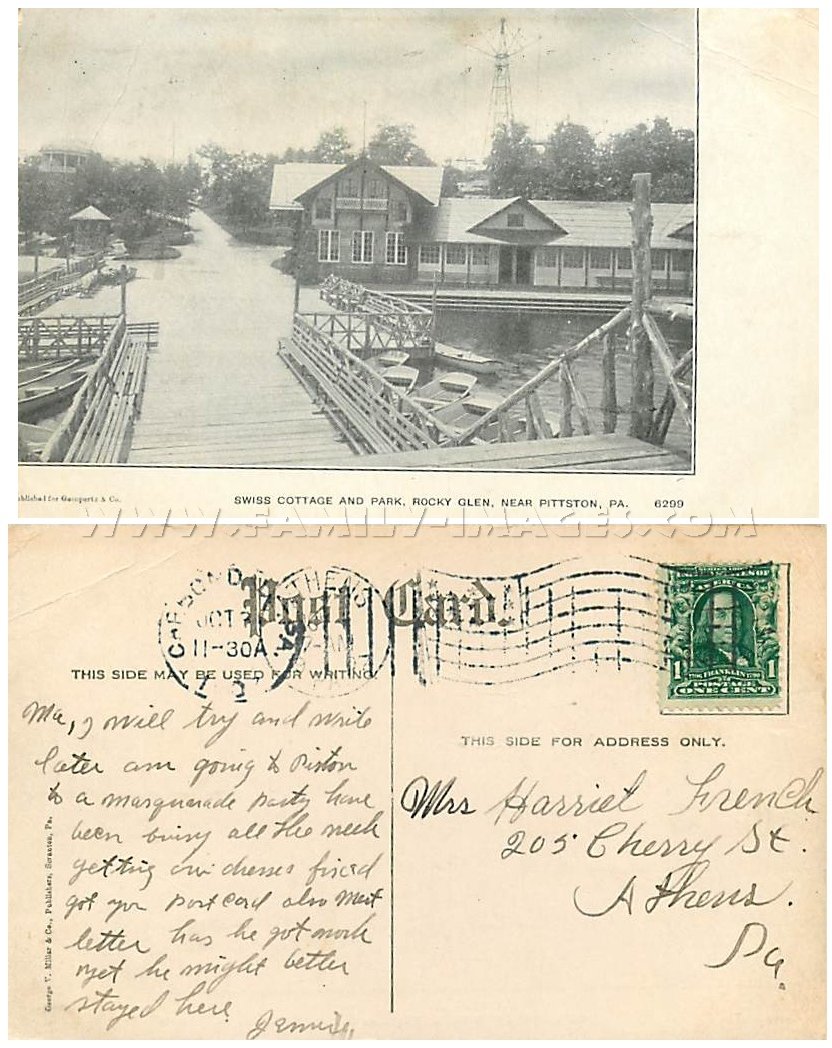 Published for Gompertz & Co.
SWISS COTTAGE AND PARK, ROCKY GLEN, NEAR PITTSTON, PA. 6299
WWW.FAMILY-IMAGES.COM
CARBOND
OCT
11-30A
PA.
ATHENS
Post Card.
THIS SIDE MAY BE USED FOR WRITING.
SERIES 1902
STATES OF
AMERICA
1 1706 FRANKLIN 1790 1
POSTAGE
ONE CENT
THIS SIDE FOR ADDRESS ONLY.
Ma, I will try and write
later am going to Piston
to a masquerade party have
been busy all the week
getting our dresses fixed
got your postcard also Mart
letter has he got work
yet he might better
stayed here.
Jennie
Mrs Harriet French
205 Cherry St.
Athens.
Pa.
George V. Millar & Co., Publishers, Scranton, Pa.